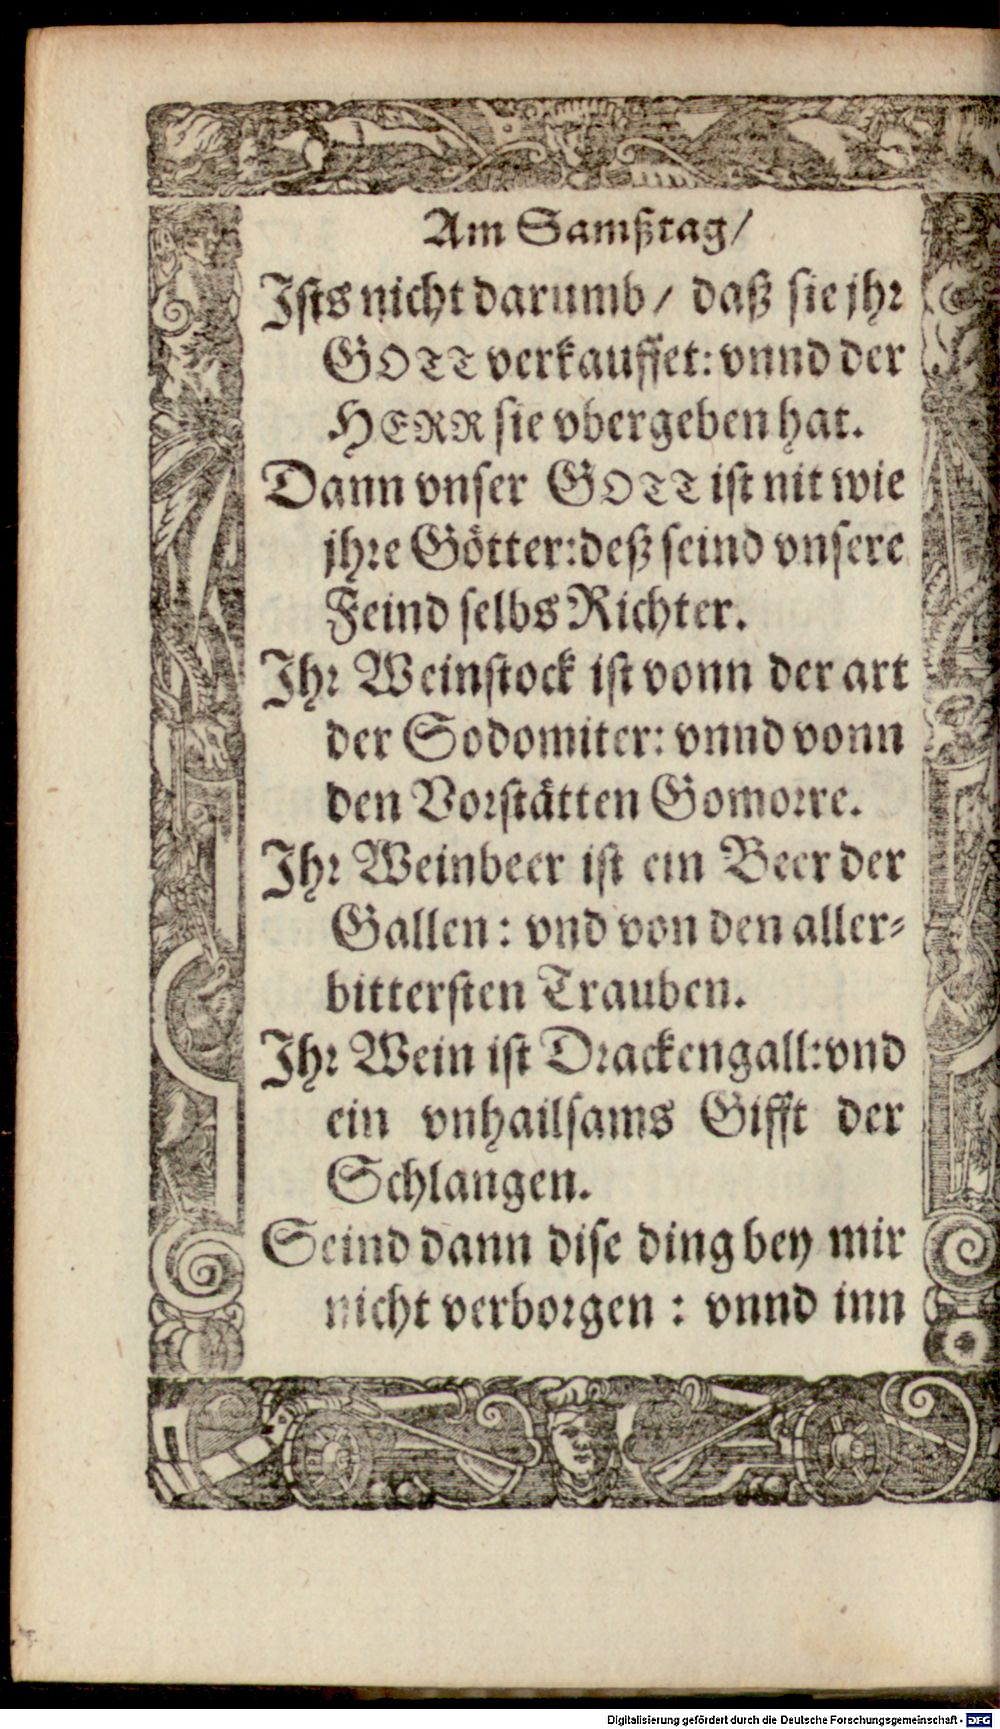 Am Samßtag/
Ists nicht darumb/ daß sie jhr
GOTT verkauffet: vnnd der
HERR sie vbergeben hat.
Dann vnser GOTT ist nit wie
jhre Götter: deß seind vnsere
Feind selbs Richter.
Ihr Weinstock ist vonn der art
der Sodomiter: vnnd vonn
den Vorstätten Gomorre.
Ihr Weinbeer ist ein Beer der
Gallen: vnd von den aller-
bittersten Trauben.
Ihr Wein ist Drackengall: vnd
ein vnhailsams Gifft der
Schlangen.
Seind dann dise ding bey mir
nicht verborgen: vnnd inn
Digitalisierung gefördert durch die Deutsche Forschungsgemeinschaft - DFG